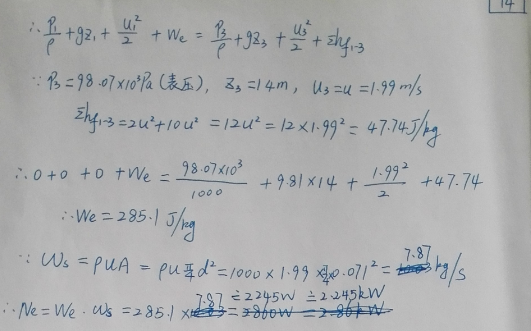 14
∴ P₁/ρ + gz₁ + u₁²/2 + We = P₃/ρ + gz₃ + u₃²/2 + Σhf₁₋₃
∵ P₃ = 98.07×10³Pa (表压), z₃ = 14m, u₃ = u = 1.99 m/s
Σhf₁₋₃ = 2u² + 10u² = 12u² = 12×1.99² = 47.74 J/kg
∴ 0 + 0 + 0 + We = 98.07×10³/1000 + 9.81×14 + 1.99²/2 + 47.74
∴ We = 285.1 J/kg
∵ Ws = ρuA = ρu π/4 d² = 1000 × 1.99 × π/4 × 0.071² = 7.87 kg/s
∴ Ne = We · Ws = 285.1 × 7.87 ≐ 2245W ≐ 2.245kW